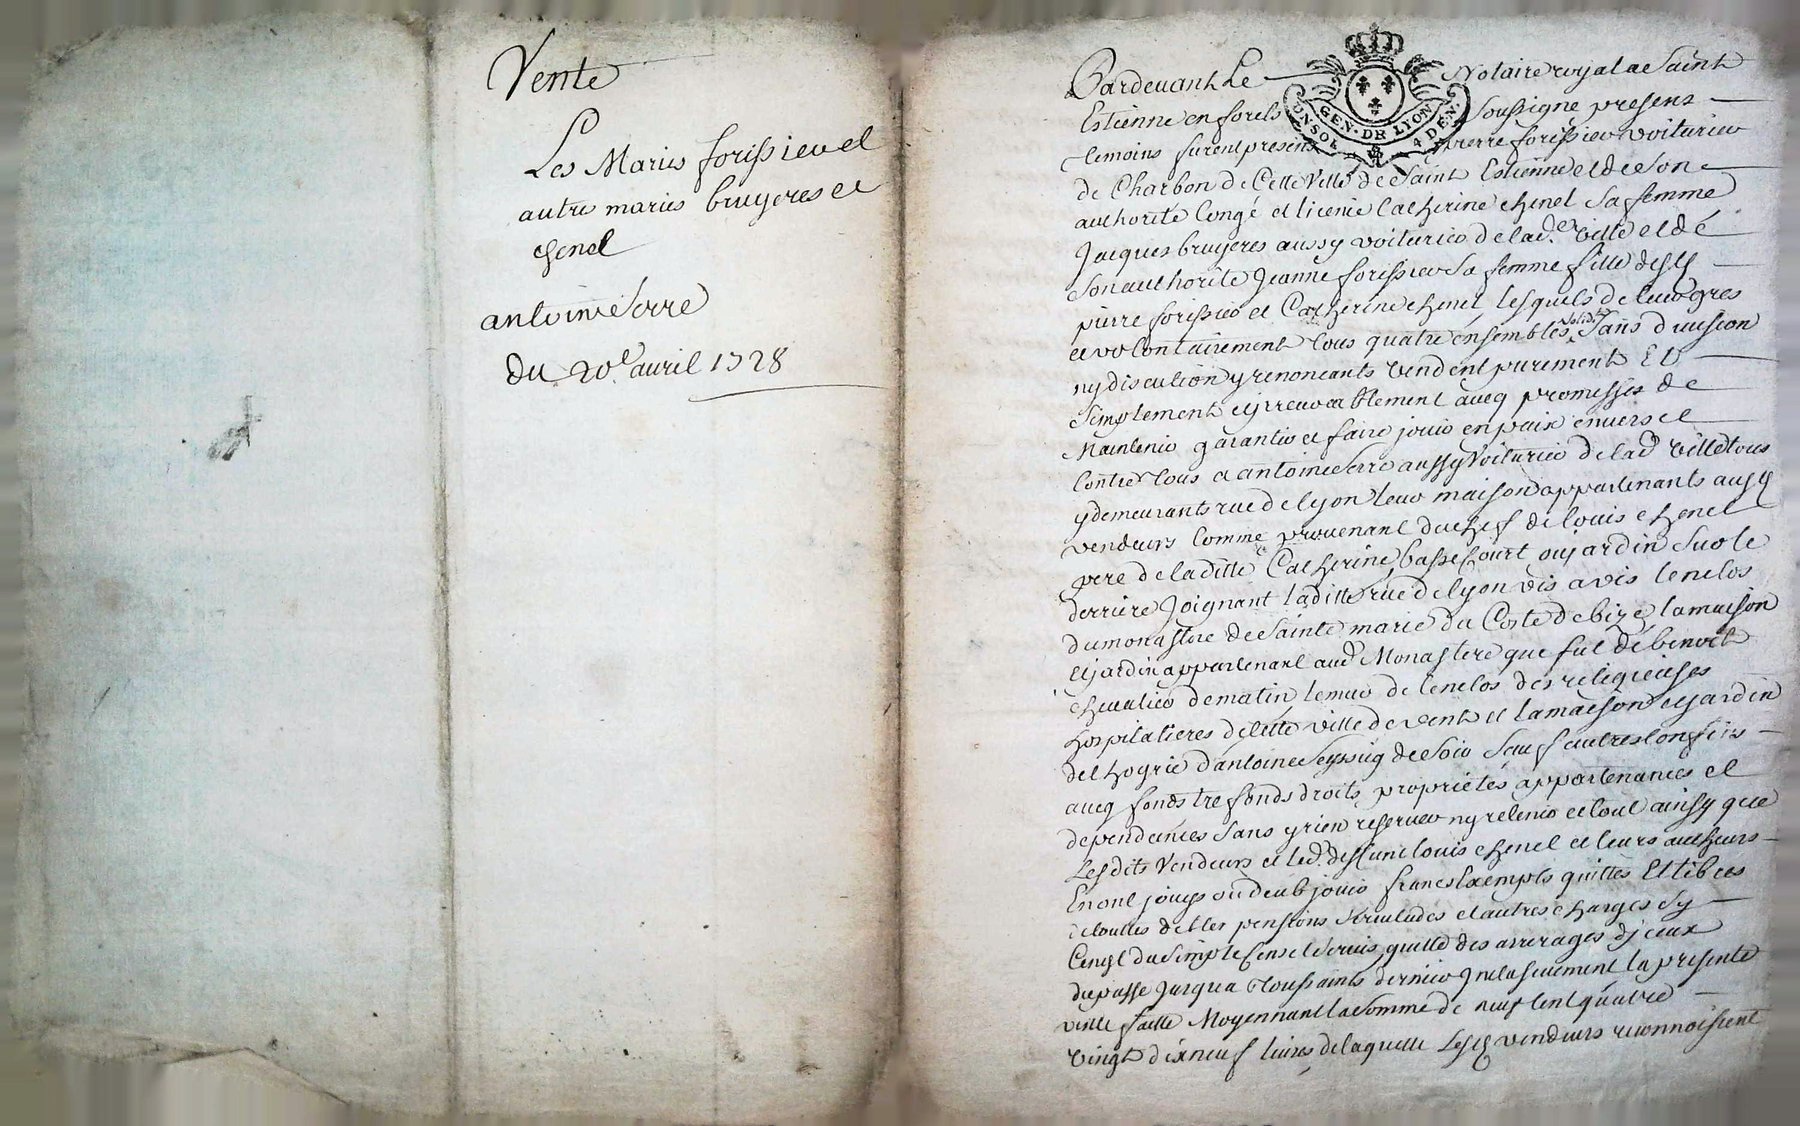 Vente
Les Maries forissieu et
autre maries bruyeres et
chenel
antoine serre
du 20e avril 1728
Pardevant Le Notaire royal a Saint
Estienne en forests soussigne presens
temoins furent presens pierre forissieu voiturier
de Charbon de Cette Ville de Saint Estienne et de son
authorite Congé et licence Catherine chenel sa femme
Jacques bruyeres aussy voiturier de lad.e ville et de
son authorite Jeanne forissieu sa femme fille desd
pierre forissieu et Catherine chenel lesquels de leur gres
et volontairement tous quatre ensembles solidt sans division
ny discution y renoncants vendent purement Et
simplement et jrrevocablement avecq promesses de
Maintenir garantir et faire jouir en paix envers et
contre tous a antoine serre aussy Voiturier de lad ville tous
y demeurants rue de lyon leur maison appartenants ausd
vendeurs Comme provenant du chef de louis chenel
pere de la ditte Catherine, basse Court ou jardin sur le
derriere Joignant la ditte rue de lyon vis a vis lenclos
du monastere de Sainte marie du Coste de bize, la maison
et jardin appartenant aud Monastere que fut de benoit
chevalier de matin le mur de lenclos des religieuses
hospitalieres de cette ville de vent et la maison et jardin
de lhoyrie dantoine seyssieq de soir sauf autres confins
avecq fonds trefonds droits, proprietés appartenances et
dependances sans y rien reserver ny retenir et tout ainsy que
Lesdits Vendeurs et led. deffunt louis chenel et leurs autheurs
En ont jouys ou deub jouir francs Exempts quittes Et libres
de touttes debtes pensions servitudes et autres charges sy
Cengt du simple Cens et servis, quitte des arrerages djceux
du passe Jusqua toussaints dernier Jnclusivement la presente
vente faitte Moyennant la somme de neuf Cent quatre
vingt dixneuf livres de laquelle Lesd vendeurs reconnoissent
GEN. DE LYON